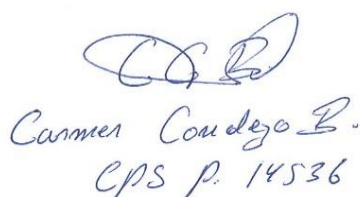 Carmen Condezo B.
CPS P. 14536